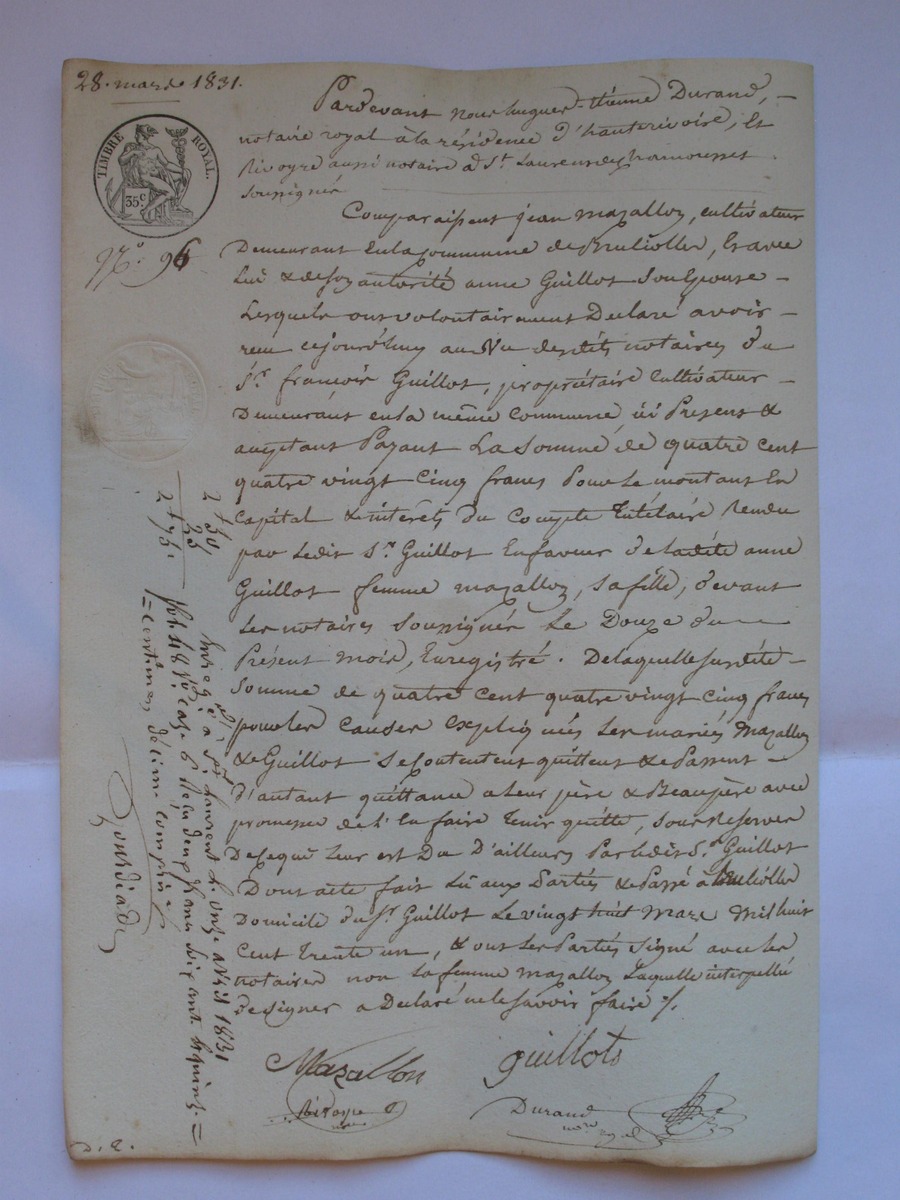 28. mars 1831.
TIMBRE ROYAL.
35 c.
N.° 96
Pardevant nous hugues-Etienne Durand,
notaire royal à la résidence d'hauterivoire, et
Rivoyre aussi notaire à St. Laurent de chamousset
soussignés
Comparaissent jean mazallon, cultivateur
Demeurant en la commune de Bruliolles, & avec
Lui & de son autorité anne Guillot son Epouse
Lesquels ont volontairement Declaré avoir
reçu cejourd'huy au Vu desdits notaires du
Sr. françois Guillot, propriétaire Cultivateur
Demeurant en la même commune, ici Present &
acceptant Payant La Somme de quatre cent
quatre vingt cinq francs Pour Le montant En
Capital & intérêts du Compte tutélaire Rendu
par Ledit Sr. Guillot En faveur de ladite anne
Guillot femme mazallon, sa fille, devant
Les notaires soussignés Le Douze du
Présent mois, Enregistré. De laquelle susdite
Somme de quatre cent quatre vingt cinq francs
pour les causes Expliquées Les mariés Mazallon
& Guillot se contentent quittent & Passent
d'autant quittance a leur père & Beaupère avec
promesse de L'En faire tenir quitte, sous Reserver
De ce qui Leur est Du D'ailleurs Par Ledit Sr. Guillot
Dont acte fait Lu aux Parties & Passé à Brulliolles
Domicile du Sr. Guillot Le vingt huit Mars Mil huit
Cent trente un, & ont Les Parties signé avec les
notaires non La femme mazallon Laquelle interpellé
de signer a Declaré ne le savoir faire ./.
Mazallon
guillots
Rivoyre
Durand
nore. royal
2 f 50.
25
2 f 75.
Enregé. à St. Laurent le onze avril 1831
fol. 48 Vo. case 6 Reçu deux francs soixante quinze
centimes décime compris
D. E.